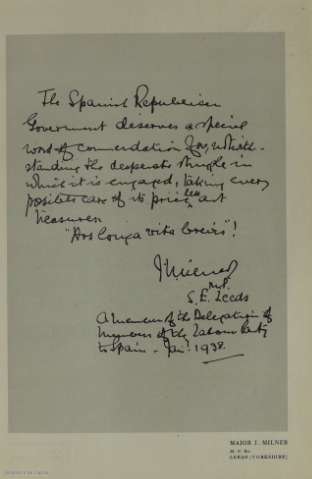 The Spanish Republican
Government deserves a special
word of commendation for, notwith-
standing the desperate struggle in
which it is engaged, taking every
possible care of its priceless art
treasures
"Ars longa vita brevis"!
J Milner
M.P.
S.E. Leeds
A member of the Delegation of
Members of the Labour Party
to Spain - Jan: 1938.
MAJOR J. MILNER
M. P. for
LEEDS (YORKSHIRE)